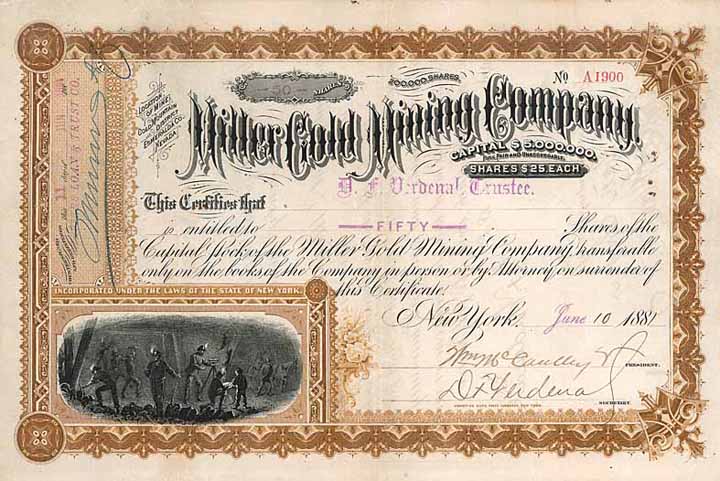 200,000 SHARES.
No A1900
50 SHARES
LOCATION OF MINES, GOLD MOUNTAIN ESMERALDA CO. NEVADA.
Miller Gold Mining Company.
CAPITAL $5,000,000.
FULL PAID AND UNASSESSABLE.
SHARES $25. EACH
This Certifies that D. F. Verdenal, Trustee.
is entitled to FIFTY Shares of the
Capital Stock of the Miller Gold Mining Company, transferable
only on the books of the Company in person or by Attorney on surrender of
this Certificate.
New York, June 10 1881
Wm McCaulley
PRESIDENT.
D. F. Verdenal
SECRETARY.
INCORPORATED UNDER THE LAWS OF THE STATE OF NEW YORK.
this 11 day of
LOAN & TRUST CO.